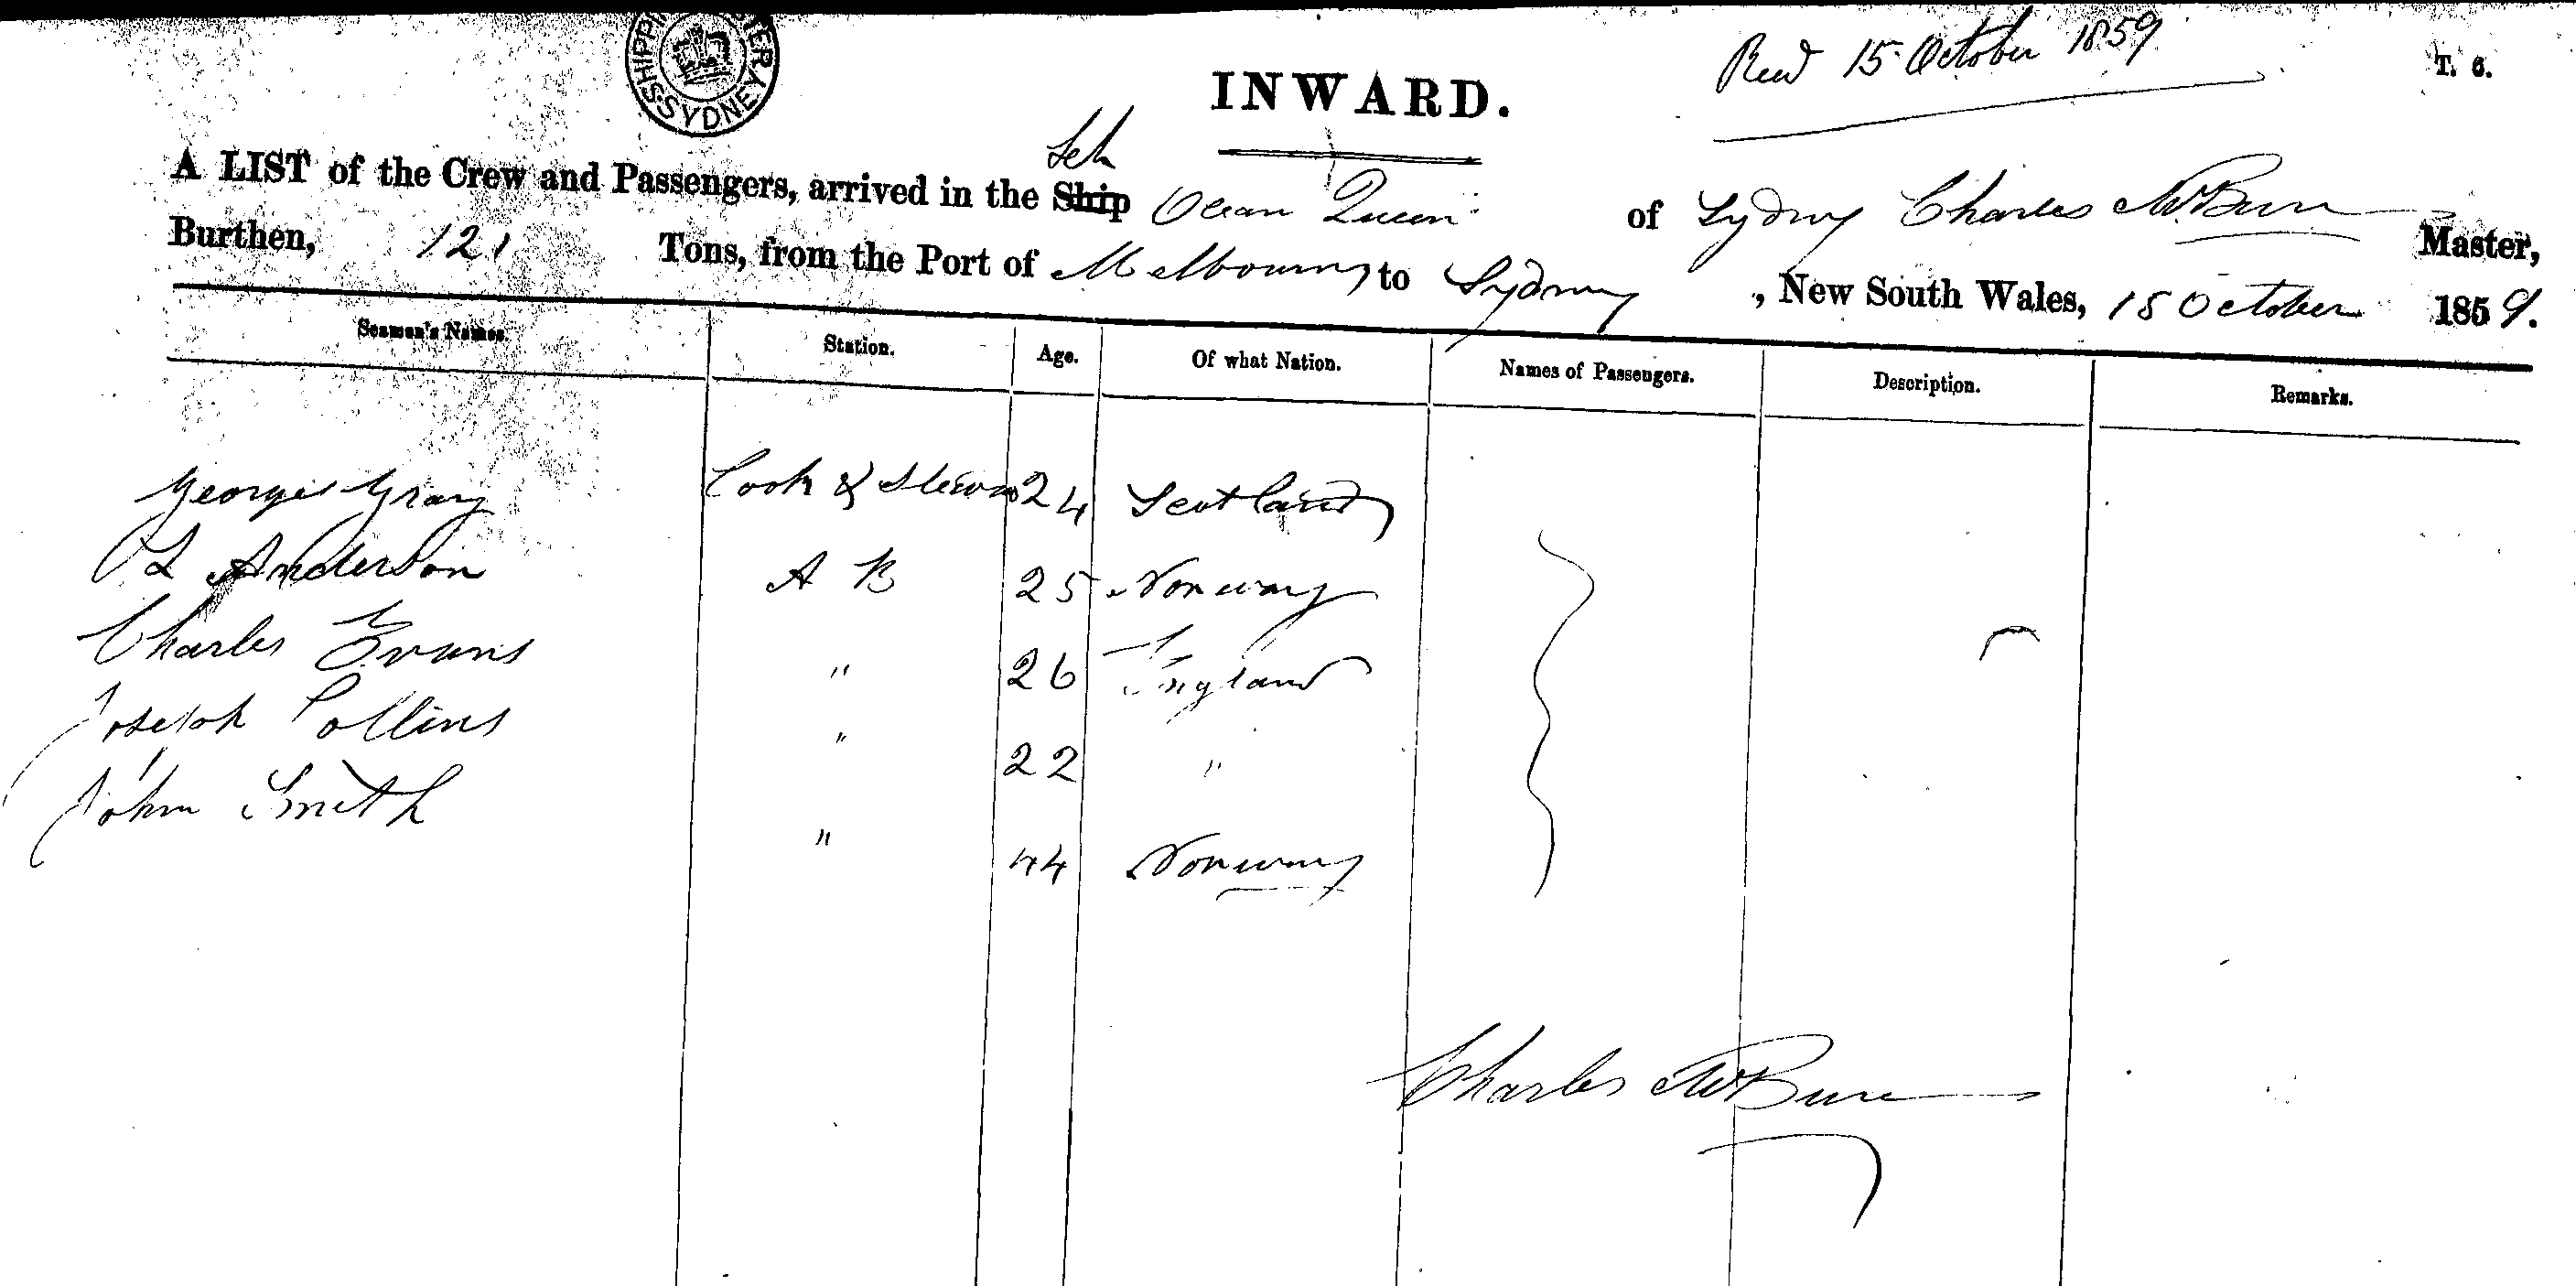 SHIPPING MASTER SYDNEY
Recd 15 October 1859
T. 6.
INWARD.
Sch
A LIST of the Crew and Passengers, arrived in the Ship Ocean Queen of Sydney Charles McBurn Master,
Burthen, 121 Tons, from the Port of Melbourne to Sydney, New South Wales, 15 October 1859.
Seaman's Names. Station. Age. Of what Nation. Names of Passengers. Description. Remarks.
George Gray Cook & Stewd 24 Scotland
Anderson A B 25 Norway
Charles Evans " 26 England
Joseph Collins " 22 "
John Smith " 44 Norway
Charles McBurn